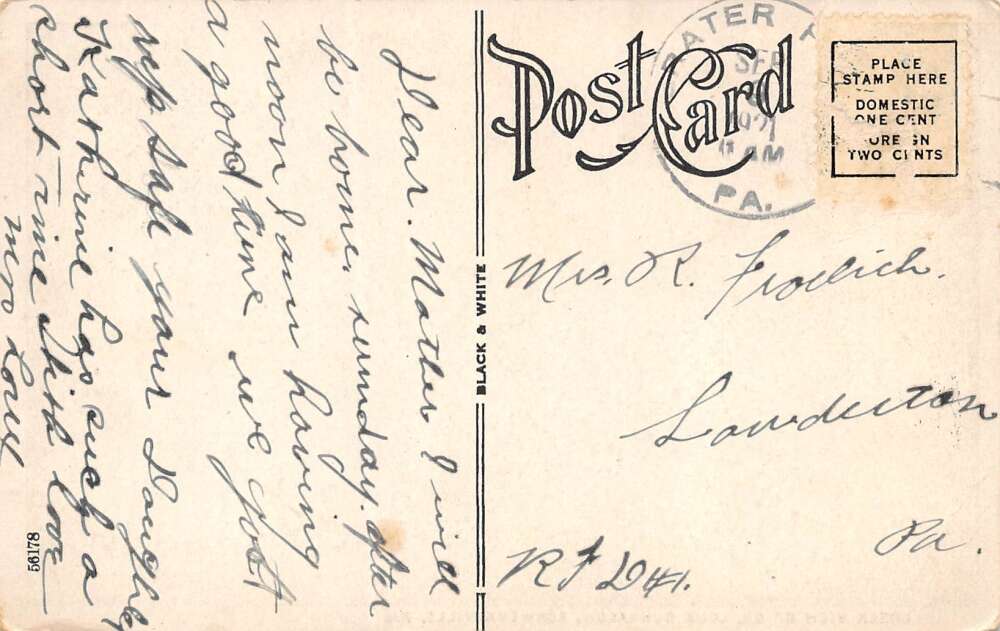 Dear. Mother I will
be home. sunnday. after
noon I am having
a good time we gost
up safe your Daughter
Katherine has such a
short time With love
mrs Long
56178
BLACK & WHITE
POST CARD
WATER
SEP
1921
AM
PA.
PLACE
STAMP HERE
DOMESTIC
ONE CENT
TWO CENTS
Mrs. R. Froelich.
Souderton
Pa.
RFD #1.